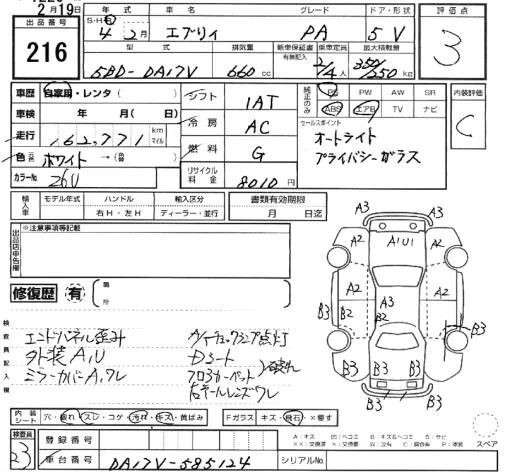 2月19日
出品番号
216
年式 車名 グレード ドア・形状
S・H・R 4年2月 エブリィ PA 5V
型式 排気量 新車保証書 有無記入 乗車定員 最大積載量
5BD-DA17V 660cc 2/4人 350/250kg
評価点
3
車歴 自家用・レンタ( )
車検 年 月( 日)
走行 162,771 km マイル
色 ホワイト →( )
カラーNo. 26U
シフト 1AT
冷房 AC
燃料 G
リサイクル料金 8010円
純正のみ PS PW AW SR
ABS エアB TV ナビ
セールスポイント
オートライト
プライバシーガラス
内装評価
C
輸入車 モデル年式 ハンドル 輸入区分
右H・左H ディーラー・並行
書類有効期限
月 日迄
出品店申告欄
※注意事項等記載
修復歴 有 箇所
検査員記入欄
エンドパネル歪み
外装A,U
ミラーカバーA,ワレ
ウォーニングランプ点灯
Dシート
フロアカーペット
右テールレンズワレ
内装シート 穴・擦れ・スレ・コゲ・汚れ・キズ・黄ばみ Fガラス キズ・飛石・×要す
検査員
23
登録番号
車台番号 DA17V-585124 シリアルNo.
A3
A2 A1U1 A2
A3
A2 A2
B2 A3 B2
B3 B3
B3 B3
B3 B3
スペア
A:キズ